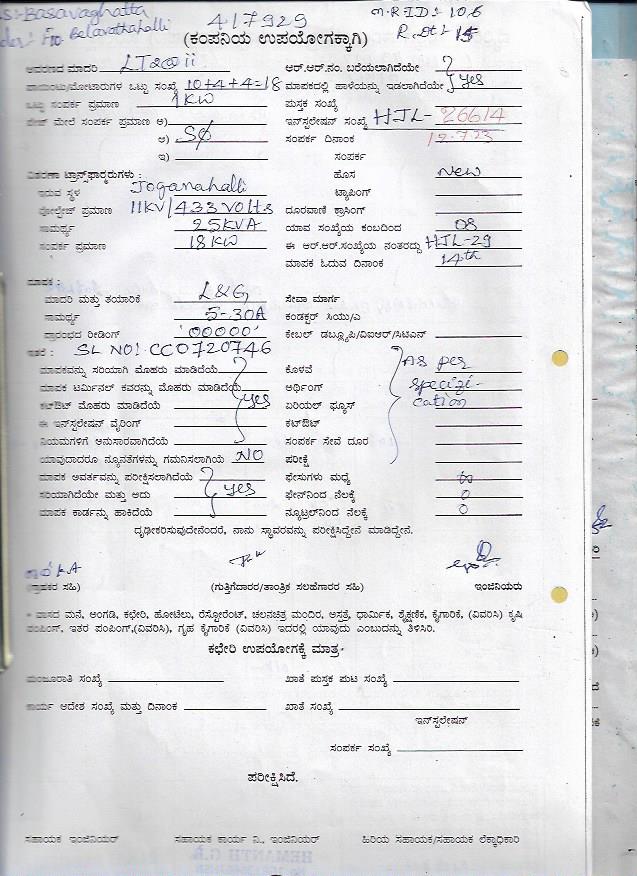 Basavaghatta
Belavathahalli
417929
M.R ID: 106
R. Dt: 15
(ಕಂಪನಿಯ ಉಪಯೋಗಕ್ಕಾಗಿ)
ಆವರಣದ ಮಾದರಿ LT2@ii ಆರ್.ಆರ್.ನಂ. ಬರೆಯಲಾಗಿದೆಯೇ
ಪಾಯಿಂಟು/ಮೋಟಾರುಗಳ ಒಟ್ಟು ಸಂಖ್ಯೆ 10+4+4=18 ಮಾಪಕದಲ್ಲಿ ಹಾಳೆಯನ್ನು ಇಡಲಾಗಿದೆಯೇ yes
ಒಟ್ಟು ಸಂಪರ್ಕ ಪ್ರಮಾಣ 1KW ಪುಸ್ತಕ ಸಂಖ್ಯೆ
ಮೇಲೆ ಸಂಪರ್ಕ ಪ್ರಮಾಣ ಅ) ಇನ್‌ಸ್ಟಲೇಷನ್ ಸಂಖ್ಯೆ HJL-26614
ಆ) Sφ ಸಂಪರ್ಕ ದಿನಾಂಕ 12-7-23
ಇ) ಸಂಪರ್ಕ
ವಿತರಣಾ ಟ್ರಾನ್ಸ್‌ಫಾರ್ಮರುಗಳು : ಹೊಸ New
ಇರುವ ಸ್ಥಳ Joganahalli ಟ್ಯಾಪಿಂಗ್
ವೋಲ್ಟೇಜ್ ಪ್ರಮಾಣ 11KV/433 Volts ದೂರವಾಣಿ ಕ್ರಾಸಿಂಗ್
ಸಾಮರ್ಥ್ಯ 25KVA ಯಾವ ಸಂಖ್ಯೆಯ ಕಂಬದಿಂದ 08
ಸಂಪರ್ಕ ಪ್ರಮಾಣ 18KW ಈ ಆರ್.ಆರ್.ಸಂಖ್ಯೆಯ ನಂತರದ್ದು HJL-29
ಮಾಪಕ ಓದುವ ದಿನಾಂಕ 14th
ಮಾಪಕ :
ಮಾದರಿ ಮತ್ತು ತಯಾರಿಕೆ L&G ಸೇವಾ ಮಾರ್ಗ
ಸಾಮರ್ಥ್ಯ 5-30A ಕಂಡಕ್ಟರ್ ಸಿಯು/ಎ
ಪ್ರಾರಂಭದ ರೀಡಿಂಗ್ '00000' ಕೇಬಲ್ ಡಬ್ಲ್ಯೂಪಿ/ವಿಐಆರ್/ಸಿಟಿಎನ್
ಇತರೆ : SL NO: CC0720746
ಮಾಪಕವನ್ನು ಸರಿಯಾಗಿ ಮೊಹರು ಮಾಡಿದೆಯೆ ಕೊಳವೆ As per
ಮಾಪಕ ಟರ್ಮಿನಲ್ ಕವರನ್ನು ಮೊಹರು ಮಾಡಿದೆಯೆ ಅರ್ಥಿಂಗ್ specifi-
ಕಟ್‌ಔಟ್ ಮೊಹರು ಮಾಡಿದೆಯೆ yes ಏರಿಯಲ್ ಫ್ಯೂಸ್ cation
ಈ ಇನ್‌ಸ್ಟಲೇಷನ್ ವೈರಿಂಗ್ ಕಟ್‌ಔಟ್
ನಿಯಮಗಳಿಗೆ ಅನುಸಾರವಾಗಿದೆಯೆ ಸಂಪರ್ಕ ಸೇವೆ ದೂರ
ಯಾವುದಾದರೂ ನ್ಯೂನತೆಗಳನ್ನು ಗಮನಿಸಲಾಗಿಯೆ NO ಪರೀಕ್ಷೆ
ಮಾಪಕ ಆವರ್ತವನ್ನು ಪರೀಕ್ಷಿಸಲಾಗಿದೆಯೆ ಫೇಸುಗಳು ಮಧ್ಯೆ ∞
ಸರಿಯಾಗಿದೆಯೇ ಮತ್ತು ಅದು yes ಫೇಸ್‌ನಿಂದ ನೆಲಕ್ಕೆ 0
ಮಾಪಕ ಕಾರ್ಡನ್ನು ಹಾಕಿದೆಯೆ ನ್ಯೂಟ್ರಲ್‌ನಿಂದ ನೆಲಕ್ಕೆ 0
ದೃಢೀಕರಿಸುವುದೇನೆಂದರೆ, ನಾನು ಸ್ಥಾವರವನ್ನು ಪರೀಕ್ಷಿಸಿದ್ದೇನೆ ಮಾಡಿದ್ದೇನೆ.
(ಗ್ರಾಹಕರ ಸಹಿ) (ಗುತ್ತಿಗೆದಾರರ/ತಾಂತ್ರಿಕ ಸಲಹೆಗಾರರ ಸಹಿ) ಇಂಜಿನಿಯರು
* ವಾಸದ ಮನೆ, ಅಂಗಡಿ, ಕಛೇರಿ, ಹೋಟೆಲು, ರೆಸ್ಟೋರೆಂಟ್, ಚಲನಚಿತ್ರ ಮಂದಿರ, ಆಸ್ಪತ್ರೆ, ಧಾರ್ಮಿಕ, ಶೈಕ್ಷಣಿಕ, ಕೈಗಾರಿಕೆ, (ವಿವರಿಸಿ) ಕೃಷಿ
ಪಂಪಿಂಗ್, ಇತರ ಪಂಪಿಂಗ್,(ವಿವರಿಸಿ), ಗೃಹ ಕೈಗಾರಿಕೆ (ವಿವರಿಸಿ) ಇದರಲ್ಲಿ ಯಾವುದು ಎಂಬುದನ್ನು ತಿಳಿಸಿರಿ.
ಕಛೇರಿ ಉಪಯೋಗಕ್ಕೆ ಮಾತ್ರ
ಮಂಜೂರಾತಿ ಸಂಖ್ಯೆ ಖಾತೆ ಪುಸ್ತಕ ಪುಟ ಸಂಖ್ಯೆ
ಕಾರ್ಯ ಆದೇಶ ಸಂಖ್ಯೆ ಮತ್ತು ದಿನಾಂಕ ಖಾತೆ ಸಂಖ್ಯೆ
ಇನ್‌ಸ್ಟಲೇಷನ್
ಸಂಪರ್ಕ ಸಂಖ್ಯೆ
ಪರೀಕ್ಷಿಸಿದೆ.
ಸಹಾಯಕ ಇಂಜಿನಿಯರ್ ಸಹಾಯಕ ಕಾರ್ಯ ನಿ., ಇಂಜಿನಿಯರ್ ಹಿರಿಯ ಸಹಾಯಕ/ಸಹಾಯಕ ಲೆಕ್ಕಾಧಿಕಾರಿ